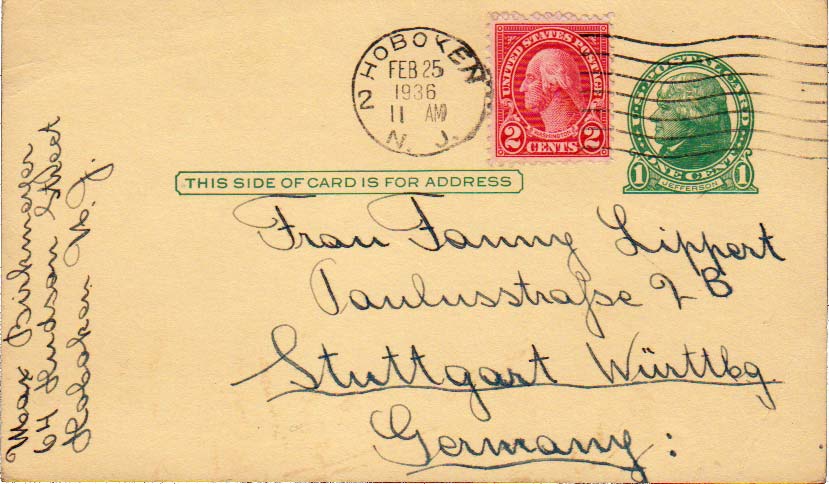 HOBOKEN
FEB 25
1936
11 AM
N. J.
2
UNITED STATES POSTAGE
WASHINGTON
2 CENTS 2
U.S. POSTAL CARD
JEFFERSON
1 ONE CENT 1
THIS SIDE OF CARD IS FOR ADDRESS
Frau Fanny Lippert
Paulusstraße 2 B
Stuttgart Württbg.
Germany:
Max Birkmeyer
64 Hudson Street
Hoboken N. J.